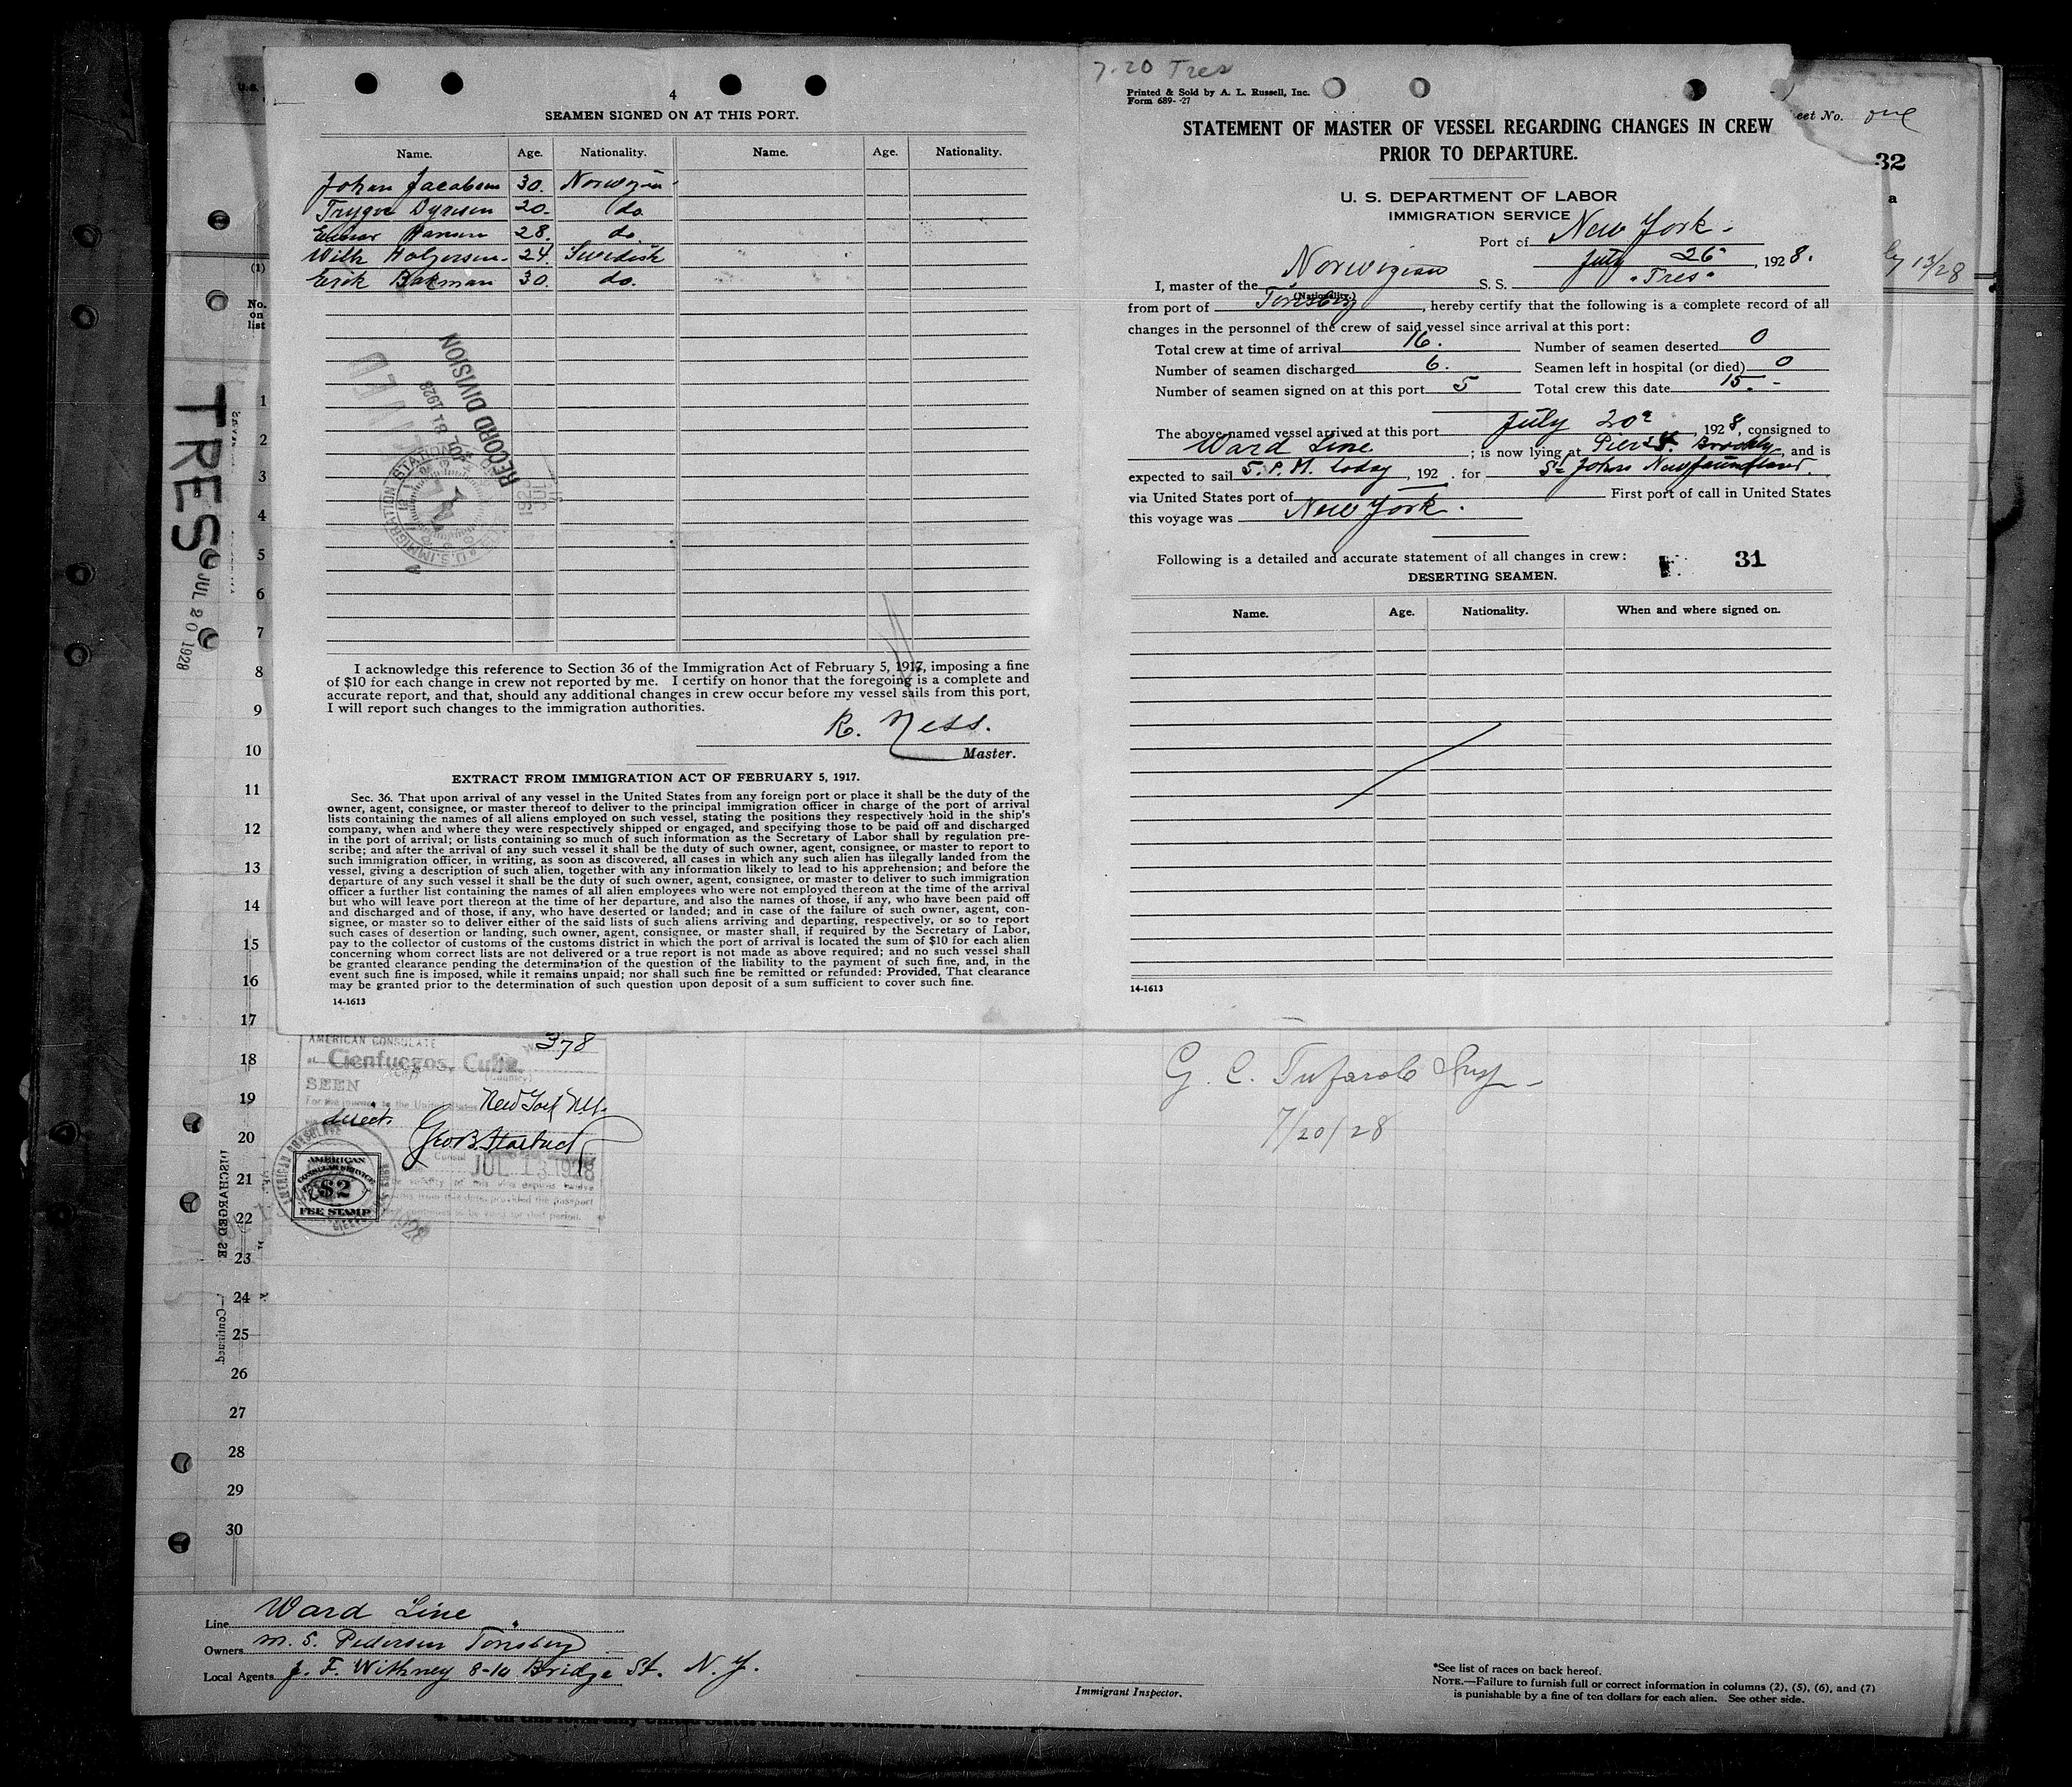 4
SEAMEN SIGNED ON AT THIS PORT.
Name. Age. Nationality. Name. Age. Nationality.
Johan Jacobsen 30. Norwegian
Trygve 20. do.
28. do
24. Swedish
Erik 30. do.
RECEIVED
JUL 31 1928
RECORD DIVISION
U.S. IMMIGRATION STATION
I acknowledge this reference to Section 36 of the Immigration Act of February 5, 1917, imposing a fine
of $10 for each change in crew not reported by me. I certify on honor that the foregoing is a complete and
accurate report, and that, should any additional changes in crew occur before my vessel sails from this port,
I will report such changes to the immigration authorities.
R. Ness.
Master.
EXTRACT FROM IMMIGRATION ACT OF FEBRUARY 5, 1917.
Sec. 36. That upon arrival of any vessel in the United States from any foreign port or place it shall be the duty of the
owner, agent, consignee, or master thereof to deliver to the principal immigration officer in charge of the port of arrival
lists containing the names of all aliens employed on such vessel, stating the positions they respectively hold in the ship's
company, when and where they were respectively shipped or engaged, and specifying those to be paid off and discharged
in the port of arrival; or lists containing so much of such information as the Secretary of Labor shall by regulation pre-
scribe; and after the arrival of any such vessel it shall be the duty of such owner, agent, consignee, or master to report to
such immigration officer, in writing, as soon as discovered, all cases in which any such alien has illegally landed from the
vessel, giving a description of such alien, together with any information likely to lead to his apprehension; and before the
departure of any such vessel it shall be the duty of such owner, agent, consignee, or master to deliver to such immigration
officer a further list containing the names of all alien employees who were not employed thereon at the time of the arrival
but who will leave port thereon at the time of her departure, and also the names of those, if any, who have been paid off
and discharged and of those, if any, who have deserted or landed; and in case of the failure of such owner, agent, con-
signee, or master so to deliver either of the said lists of such aliens arriving and departing, respectively, or so to report
such cases of desertion or landing, such owner, agent, consignee, or master shall, if required by the Secretary of Labor,
pay to the collector of customs of the customs district in which the port of arrival is located the sum of $10 for each alien
concerning whom correct lists are not delivered or a true report is not made as above required; and no such vessel shall
be granted clearance pending the determination of the question of the liability to the payment of such fine, and, in the
event such fine is imposed, while it remains unpaid; nor shall such fine be remitted or refunded: Provided, That clearance
may be granted prior to the determination of such question upon deposit of a sum sufficient to cover such fine.
14-1613
7.20 Tres
Printed & Sold by A. L. Russell, Inc.
Form 689- -27
STATEMENT OF MASTER OF VESSEL REGARDING CHANGES IN CREW
PRIOR TO DEPARTURE.
U. S. DEPARTMENT OF LABOR
IMMIGRATION SERVICE
Port of New York.
July 26, 1928.
I, master of the Norwegian S. S. "Tres"
(Nationality.)
from port of Tönsberg, hereby certify that the following is a complete record of all
changes in the personnel of the crew of said vessel since arrival at this port:
Total crew at time of arrival 16. Number of seamen deserted 0
Number of seamen discharged 6. Seamen left in hospital (or died) 0
Number of seamen signed on at this port 5 Total crew this date 15.
The above-named vessel arrived at this port July 20, 1928, consigned to
Ward Line; is now lying at Pier, and is
expected to sail 5. P.M. today, 192 . for St Johns Newfoundland.
via United States port of First port of call in United States
this voyage was New York.
Following is a detailed and accurate statement of all changes in crew: 31
DESERTING SEAMEN.
Name. Age. Nationality. When and where signed on.
14-1613
eet No. one
32
a
13/28
U.S.
(1)
No.
on
list
TRES
JUL 20 1928
1
2
3
4
5
6
7
8
9
10
11
12
13
14
15
16
17
18
19
20
21
22
23
24
25
26
27
28
29
30
DISCHARGED SE
—Continued
378
AMERICAN CONSULATE
at Cienfuegos, Cuba.
(Country)
SEEN
For the journey to the United States
New York
direct.
Geo. B. Starbuck
Consul
JUL 13 1928
AMERICAN
CONSULAR SERVICE
$2
FEE STAMP
G. C. Insp
7/20/28
Line Ward Line
Owners M. S. Pedersen Tönsberg
Local Agents J. F. Withney 8-10 Bridge St. N. Y.
Immigrant Inspector.
*See list of races on back hereof.
NOTE.—Failure to furnish full or correct information in columns (2), (5), (6), and (7)
is punishable by a fine of ten dollars for each alien. See other side.